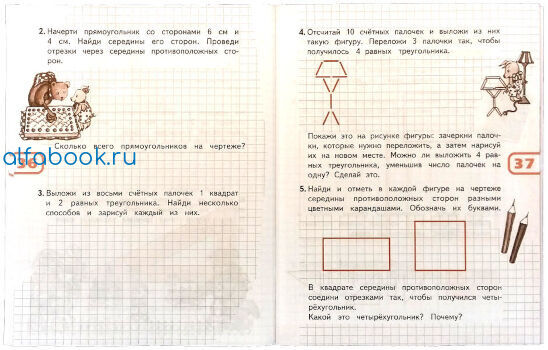 2. Начерти прямоугольник со сторонами 6 см и
4 см. Найди середины его сторон. Проведи
отрезки через середины противоположных сто-
рон.
Сколько всего прямоугольников на чертеже?
alfabook.ru
36
3. Выложи из восьми счётных палочек 1 квадрат
и 2 равных треугольника. Найди несколько
способов и зарисуй каждый из них.
4. Отсчитай 10 счётных палочек и выложи из них
такую фигуру. Переложи 3 палочки так, чтобы
получилось 4 равных треугольника.
Покажи это на рисунке фигуры: зачеркни палоч-
ки, которые нужно переложить, а затем нарисуй
их на новом месте. Можно ли выложить 4 рав-
ных треугольника, уменьшив число палочек на
одну? Сделай это.
37
5. Найди и отметь в каждой фигуре на чертеже
середины противоположных сторон разными
цветными карандашами. Обозначь их буквами.
В квадрате середины противоположных сторон
соедини отрезками так, чтобы получился четы-
рёхугольник.
Какой это четырёхугольник? Почему?